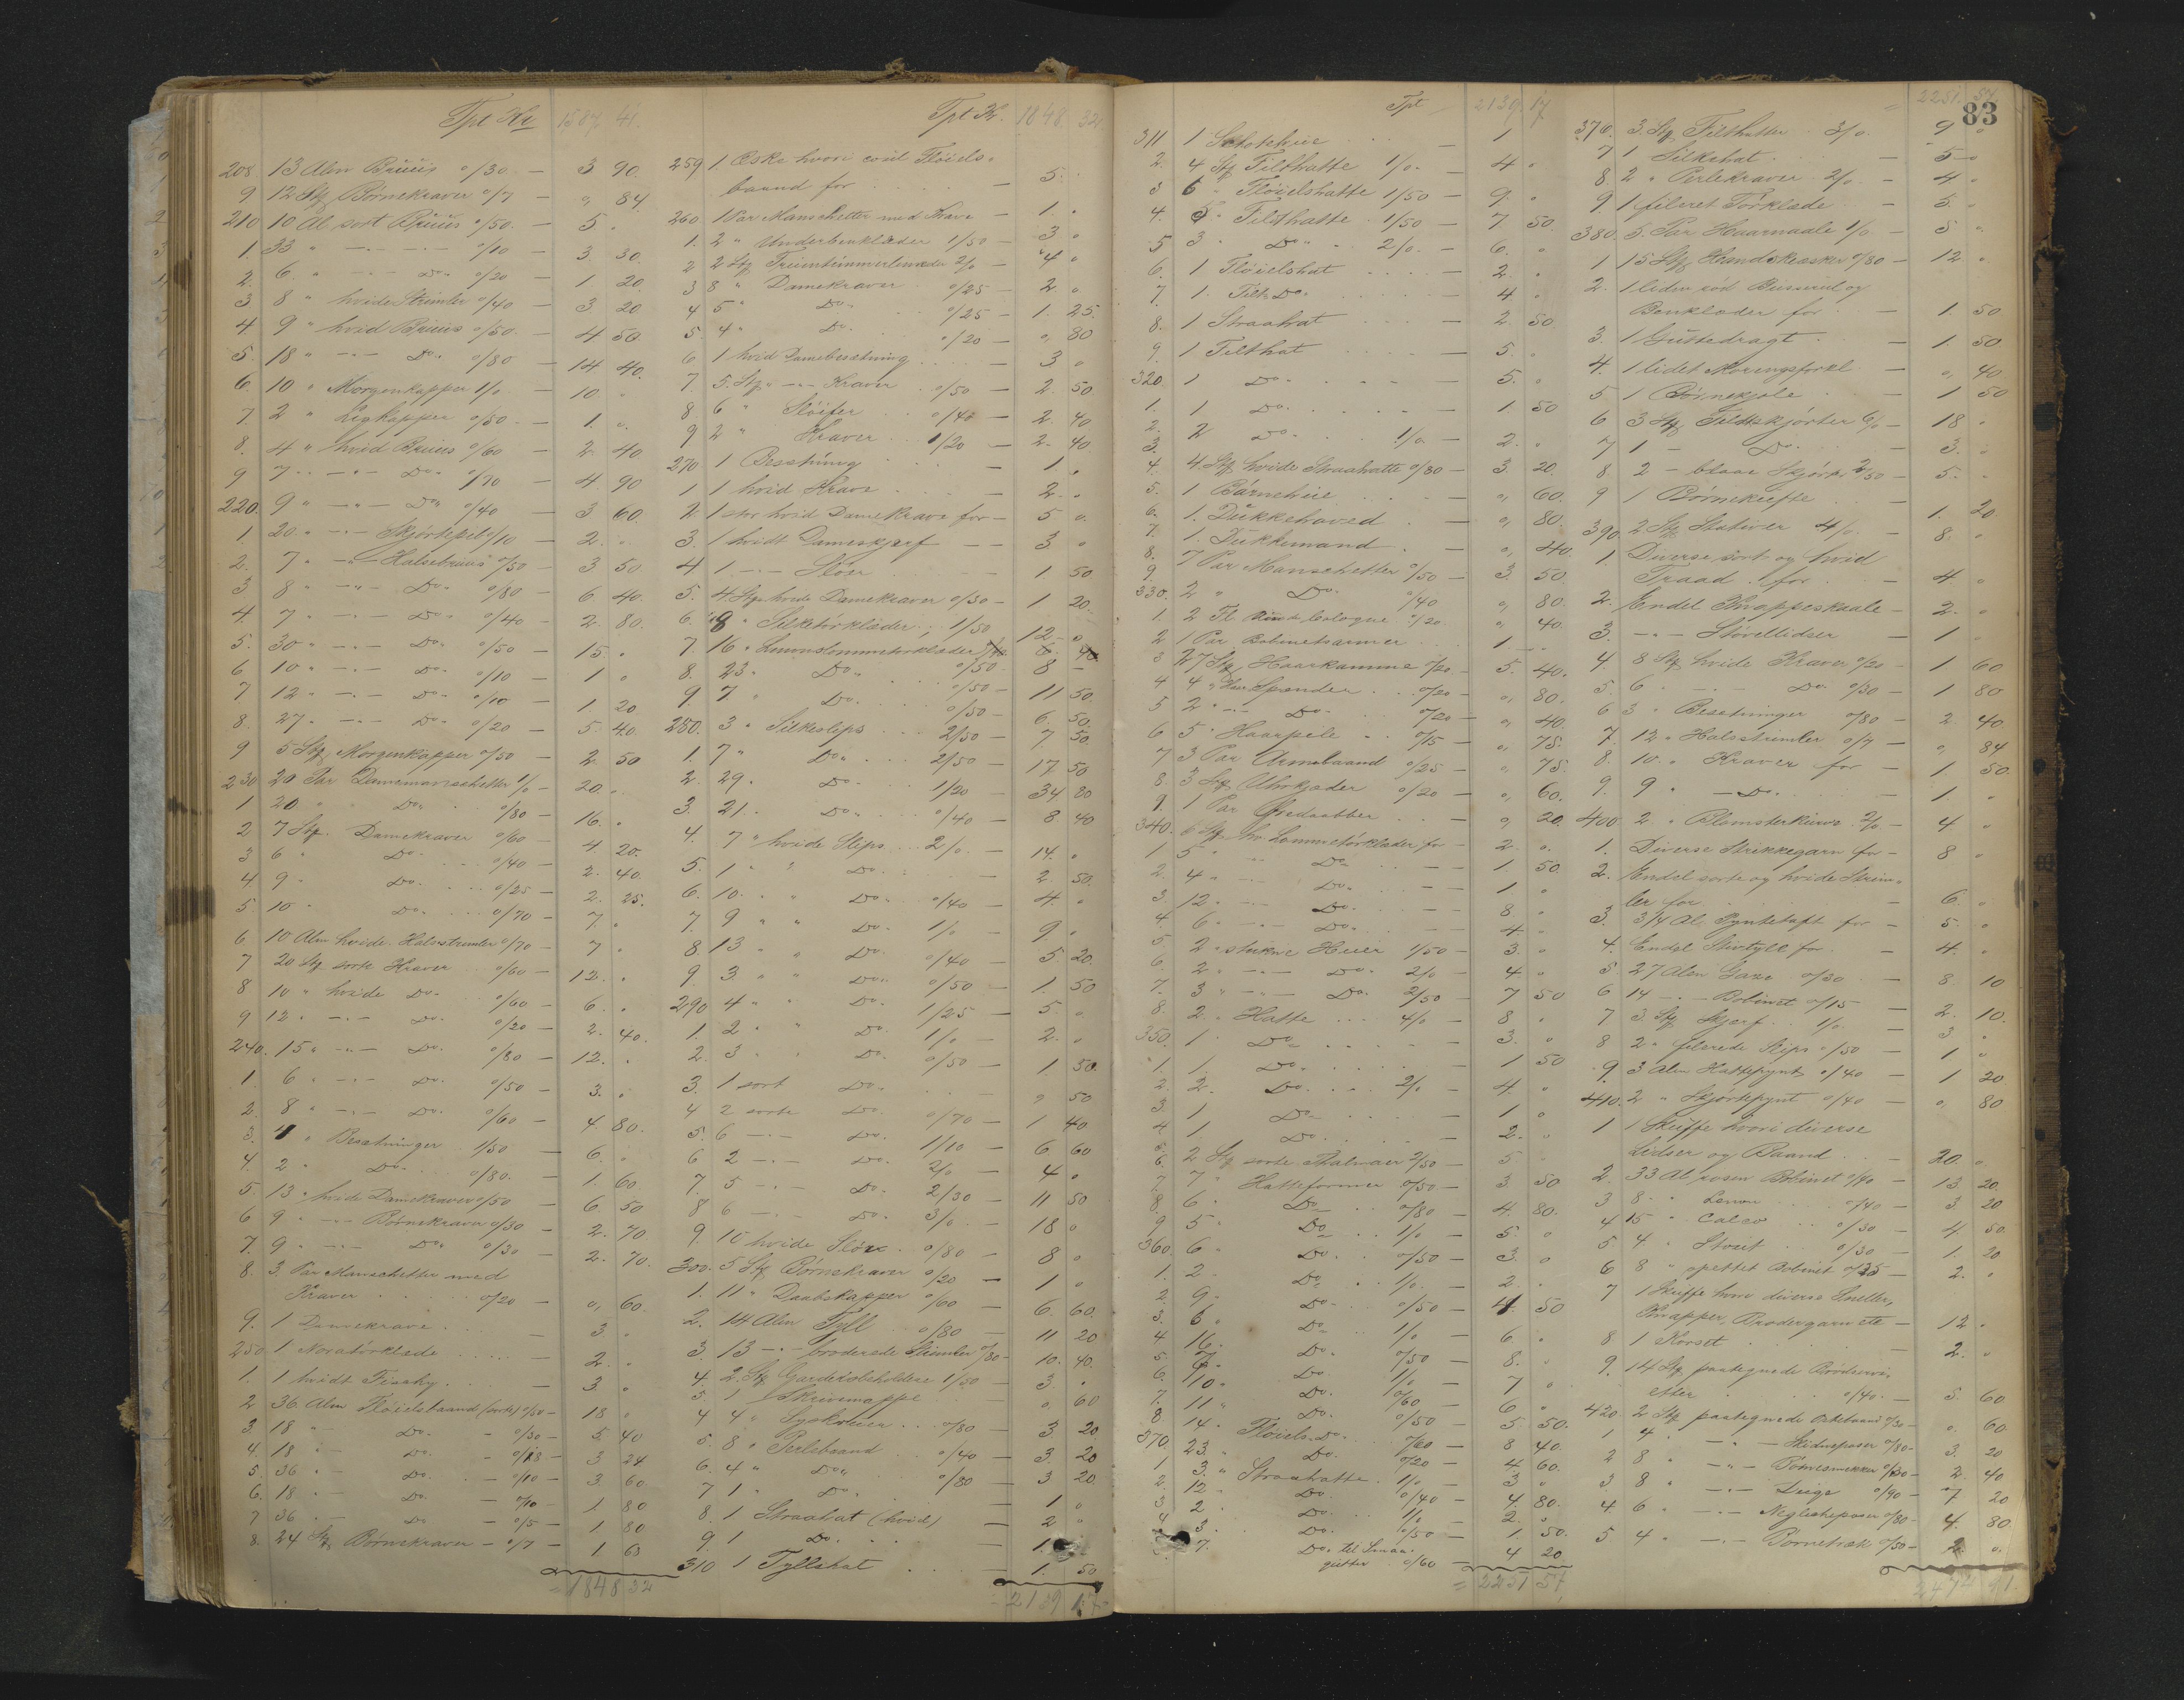 Tpt Kr 1587. 41.
208. 13 Alen Brüüs 0/30 — 3 90.
9 12 Stk Børnekraver 0/7 — " 84
210 10 Al. sort Brüüs 0/50. — 5 "
1. 33 " — " — " — 0/10 — 3. 30.
2. 6. " — " — Do " 0/20 — 1 20.
3 8 " hvide Strimler 0/40 — 3 20
4. 9 " hvid Brüüs 0/50 — 4 50
5. 18 " — " — Do. 0/80 — 14 40.
6. 10 " Morgenkapper 1/0. — 10 "
7 2 " Ligkapper 0/50 — 1. "
8. 4 " hvid Brüüs 0/60 — 2 40
9 7 " — " — Do. 0/70 — 4 90
220. 9 " — " — Do 0/40 — 3 60.
1 20 " — " — 0/10 — 2. "
2. 7 " — " — Halsebrüüs 0/50 — 3 50.
3 8 " — " — Do. 0/80 — 6 40.
4. 7 " — " — Do. 0/40 — 2. 80.
5. 30 " — " — Do. 0/50 — 15. "
6. 10 " — " — Do. 0/10 — 1 "
7 12 " — " — Do. 0/10 — 1 20
8. 27 " — " — Do. 0/20 — 5. 40.
9 5 Stk Morgenkapper 0/50 — 2 50
230 20 Par Damemanschetter 1/0 — 20. "
1 20 " Do. 0/80 — 16. "
2 7 Stk. Damekraver 0/60 — 4 20.
3 6 " Do. 0/40 — 2. 40.
4 9 " Do. 0/25 — 2. 25.
5. 10 " Do. 0/70 — 7 "
6. 10 Alen hvide Halsstrimler 0/70 — 7 "
7 20 Stk sorte Kraver 0/60 — 12. "
8 10 " hvide Do. 0/60 — 6 "
9 12. " — " — Do. 0/20 — 2. 40.
240. 15 " — " — Do. 0/80 — 12. "
1. 6 " — " — Do. 0/50 — 3. "
2. 8 " — " — Do. 0/60 — 4 80.
3. 4 " Besætninger 1/50 — 6. "
4. 2 " Do. 0/80. — 1. 60.
5. 13 " hvide Damekraver 0/50 — 6. 50
6 9 " — " — Børnekraver 0/30 — 2. 70.
7. 9 " — " — Do. 0/30 — 2. 70.
8. 3 Par Manschetter med
Kraver . . . 0/20 — " 60.
9. 1 Damekrave . . . — 3 "
250. 1 . . . — 2. "
1. 1 hvidt Fischy . . . — 3. "
2 36 Alen Fløielsbaand (sort) 0/50 — 18 "
3. 18 " — Do. — 0/30 — 5 40
4. 18 " — Do. — 0/18 — 3 24
5. 36 " — Do. — 0/10 — 3. 60.
6. 18 " — Do. — 0/10 — 1. 80
7 36 " — Do. — 0/5 — 1 80
8. 24 Stk Børnekraver — 0/7 — 1 68
= 1848 32
Tpt Kr. 1848. 32
259 1. Æske hvori Fløiels-
baand for . . . — 5. "
260 1 Par Manschetter med Krave — 1. "
1. 2 " Underbenklæder 1/50 — 3 "
2 2 Stk 2/0 — 4 "
3 8 " Damekraver 0/25 — 2 "
4 5 " Do. 0/25 — 1. 25.
5. 4 " Do. 0/20 — " 80
6 1 hvid Damebesætning . . . — 3 "
7. 5. Stk " — " — Kraver 0/50 — 2. 50
8. 6 " Sløifer 0/40 — 2. 40
9 2 " Kraver 1/20 — 2. 40
270 1 Besætning . . . — 1 "
1 1 hvid Krave . . . — 2. "
2 1 stor hvid Damekrave for — 5 "
3. 1 hvidt Dameskjerf — — 3 "
4 1 — " — Slør — 1 50
5. 4 Stk hvide Damekraver 0/30 — 1 20.
6. 8 " Silketørklæder 1/50 12 — "
7. 16 " 0/50 — 8 —
8. 23 " Do. 0/50 — 11 50
9. 7 " Do. 0/50 — 6. 50.
280. 3 " Silkeslips 2/50 — 7 50.
1. 7 " Do. 2/50 — 17 50
2. 29. " Do. 1/20 — 34 80
3. 21. " Do. 0/40 — 8 40
4. 7 " hvide Slips 2/0. — 14. "
5. 1 " " Do. . . . 2. 50.
6. 10. " " Do. 0/40 — 4. "
7. 9 " " Do. 1/0 — 9 "
8. 13 " " Do. 0/40 — 5 20.
9. 3 " " Do. 0/50 — 1. 50
290 4 " " Do. 1/25 — 5. "
1. 2 " " Do. 1/0 — 2. "
2. 3 " " Do. 0/50 — 1. 50.
3. 1 sort Do. . . — " 50
4 2 sorte Do. 0/70 — 1 40
5. 6 — " — Do. 1/10 — 6 60
6 2 — " — Do. 2/0 — 4 "
7. 5 — " — Do. 2/30 — 11 50
8 6 — " — Do. 3/0. — 18 "
9. 10 hvide Slør 0/80 — 8 "
300. 5 Stk Børnekraver 0/20 — 1 "
1. 11 " Daabskapper 0/60 — 6. 60.
2. 14 Alen Tyll 0/80 — 11 20
3. 13 — " — broderede Strimler 0/80 — 10. 40.
4. 2. Stk Garderobeholdere 1/50 — 3. "
5. 1 Skrivemappe — " 60
4 4 " 0/80 — 3 20
5. 8 " Perlebaand 0/40 — 3. 20
6. 4 " Do. 0/80 — 3 20
7 1 " Do. — 1 "
8. 1 Straahat (hvid) — 2 "
9. 1 Do. . . — 1.
310 1 Tyllshat . . . — 1. 50
= 2139 17
Tpt 2139. 17
311 1 . . . — 1 "
2. 4 Stk Filthatte 1/0. — 4 "
3 6 " Fløielshatte 1/50 — 9. "
4. 5 " Filthatte 1/50 — 7. 50.
5 3 " Do. 2/0. — 6. "
6. 1 Fløielshat . . . — 2. "
7. 1. Filt Do. . . . 4 "
8. 1 Straahat . . . — 2 50.
9. 1 Filthat . . . — 5. "
320. 1 Do. . . . — 5. "
1. 1 Do. . . . — 1. 50
2. 2 Do. 1/0. — 2. "
4. 4. Stk hvide Straahatte 0/80 — 3. 20.
5. 1 Barnehue . . . — " 60.
6. 1. Dukkehoved . — " 80
7. 1. Dukkemand . — " 40.
8. 7 Par Manschetter 0/50 — 3. 50.
330. 2 " Do. 0/40 " 80.
1. 2 Fl. Cologne 0/20. " 40.
2 1 Par Bobinetsærmer . 1. —
3 27 Stk Haarkamme 0/20 — 5. 40.
4 4 " Spænder . 0/20 — " 80.
5 2 " — " — Do. 0/20 — " 40.
6 5 " Haarpile . . 0/15 — " 75.
7 3 Par Armebaand 0/25 — " 75.
8. 3 Stk Uhrkjæder 0/20 — " 60.
9. 1 Par . . — " 20.
340. 6 Stk hv. Lommetørklæder for — 2. "
1 5 " — " — Do. — — 1 50.
2. 4 " — " — Do. — — 1 "
3. 12. " — Do. — — 8. "
4. 6 " — " — Do. — — 4. "
5. 2 " Huer 1/50 — 3. "
6. 2 " — " — Do. 2/0 — 4. "
7. 3 " — " — Do. 2/50 — 7 50
8. 2. " Hatte . . . 4/0 — 8 "
350. 1. Do. . . . — 3. "
1. 1. Do. . . . 1 50
2. 2. Do. 2/0 — 4. "
3. 1 Do. . . . — 1 "
4 1 Do. . . . — 2. "
6. 2 Stk sorte 2/50 — 5 "
7 7 " Hatteformer 0/50 — 3. 50
8. 6 " Do. 0/80 — 4. 80.
9 5 " Do. 1/0 — 5. "
360. 6 " Do. 0/50 — 3. "
1. 2. " Do. 1/0. — 2. "
2. 9 " Do. 0/50 — 4. 50
3. 6 " Do. 1/0 — 6. "
4 16. " Do. 0/50 — 8. "
5. 7 " Do. 1/0 — 7 "
6. 10 " Do. 0/60 — 6 "
7. 11 " Do. 0/50 — 5. 50.
8. 14. Fløiels Do. 0/60 — 8 40.
370. 23. " Do. 0/20 — 4. 60.
1 3 " Straahatte 1/0 — 3 "
2. 12 " Do. 0/40 — 4. 80.
3 2 . Do. 1/0 — 2. "
4 3. Do. 0/50 — 1. 50.
7. Do. til Smaa-
gutter 0/60 — 4 20
= 2251 57
= 2251. 57
83
376. 3. Stk Filthatter 3/0. — 9 "
7 1 Silkehat . . . — 5 "
8. 2 " Perlekraver 2/0. — 4 "
9. 1 fileret Tørklæde — 5. "
380. 5. Par Haarnaale 1/0. — 5 "
1 15 Stk Handskeæsker 0/80 — 12 "
2. 1 liden rød Busserul og
Benklæder for . . — 1. 50
3. 1 Guttedragt . . — 1. 50
4. 1 lidet — " 40
5 1 Børnekjole . . — 1 50
6 3 Stk Feldtskjorter 6/0 — 18 "
7 1 — Do. . . — 3. "
8. 2 — blaae Skjorter 2/50 — 5. "
9 1 Børnekufte . . — 1. 20
390. 2 Stk Stativer 4/0. — 8. "
1. Diverse sort og hvid
Traad for . . — 4 "
2. Endel Knappeskaale — 2. "
3. — " — Støvellidser — 1 "
4 8 Stk hvide Kraver 0/20 — 1 60
5. 6 " — " — Do. 0/30 — 1 80
6 3 " Besætninger 0/80 — 2 40
7. 12 " Halsstrimler 0/7 — " 84
8. 10. " Kraver for — 1 50.
9. 9 " — Do. . . — 1. "
400. 2. " Blomsterkurve 2/0 — 4 "
1. Diverse Strikkegarn for — 8 "
2. Endel sorte og hvide Strim-
ler for . . — 6. "
3. 3/4 Al. Pyntetaft for — 5 "
4. Endel Stivtyll for — 4. "
5. 27 Alen Gaze 0/30 — 8. 10
6 14 — " — Bobinet 0/15 — 2. 10.
7 3. Stk Skjerf 1/0. — 3 "
8 2 " filerede Slips 0/50 — 1 "
9. 3 Alen Hattepynt 0/40 — 1 20
410. 2 " Skjørtepynt 0/40 — " 80
1 1 Skuffe hvori diverse
Lidser og Baand . . — 20. "
2. 33 Al. rosen Bobinet 0/40 — 13 20
3 8 " 0/40 — 3. 20
4 15 " 0/30 — 4 50.
5 4 " Stout 0/30 — 1. 20
6 8 " spettet Bobinet 0/25 — 2. "
7 1 Skuffe hvori diverse Sneller,
Knapper, Brodergarn etc — 12 "
8 1 Korset . . . — 2. "
9. 14 Stk paategnede
0/40. — 5. 60
420. 2 Stk paategnede 0/30 — " 60.
1 4 " — " — 0/80 — 3. 20
2 8 " — " — 0/30 — 2. 40
3 8 " — " — Duge 0/90 — 7 20
4 6 " — " — Negligeeposer 0/80 — 4. 80
5 4 " — " — 0/50 — 2. "
2472 91.